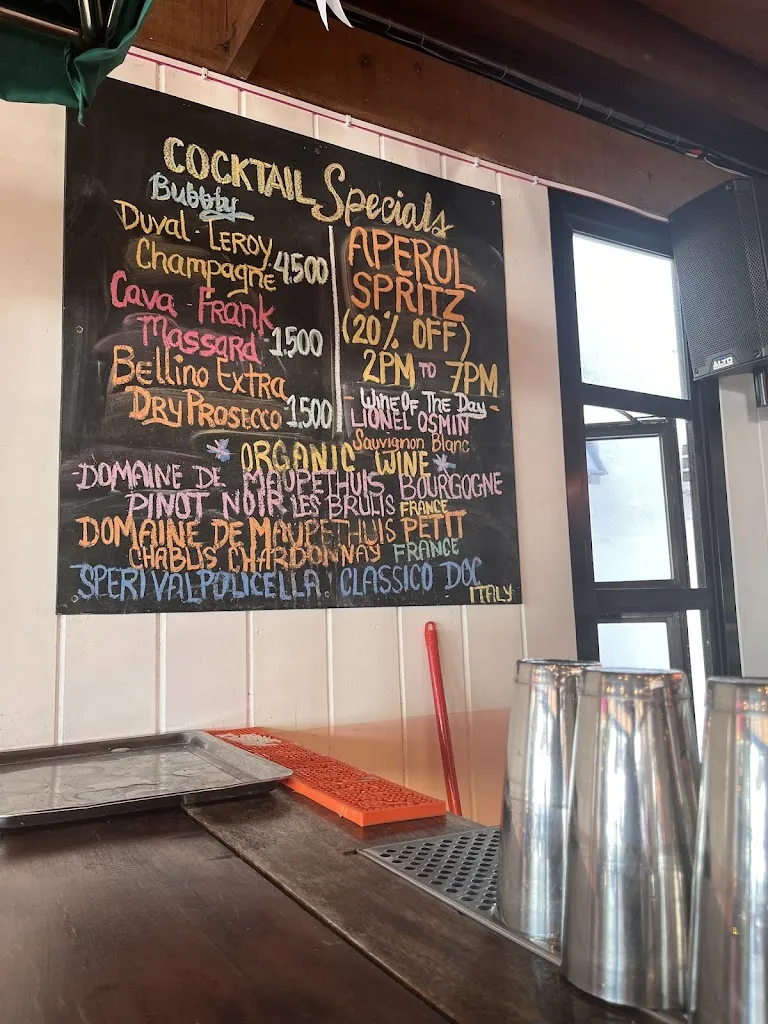 COCKTAIL Specials
Bubbly
Duval-Leroy
Champagne 4,500
Cava-Frank
Massard -1,500
Bellino Extra
Dry Prosecco 1,500
APEROL
SPRITZ
(20% OFF)
2PM TO 7PM
- Wine Of The Day -
LIONEL OSMIN
Sauvignon Blanc
ORGANIC WINE
DOMAINE DE MAUPETHUIS BOURGOGNE
PINOT NOIR LES BRULIS FRANCE
DOMAINE DE MAUPETHUIS PETIT
CHABLIS CHARDONNAY FRANCE
SPERI VALPOLICELLA CLASSICO DOC
ITALY
ALTO